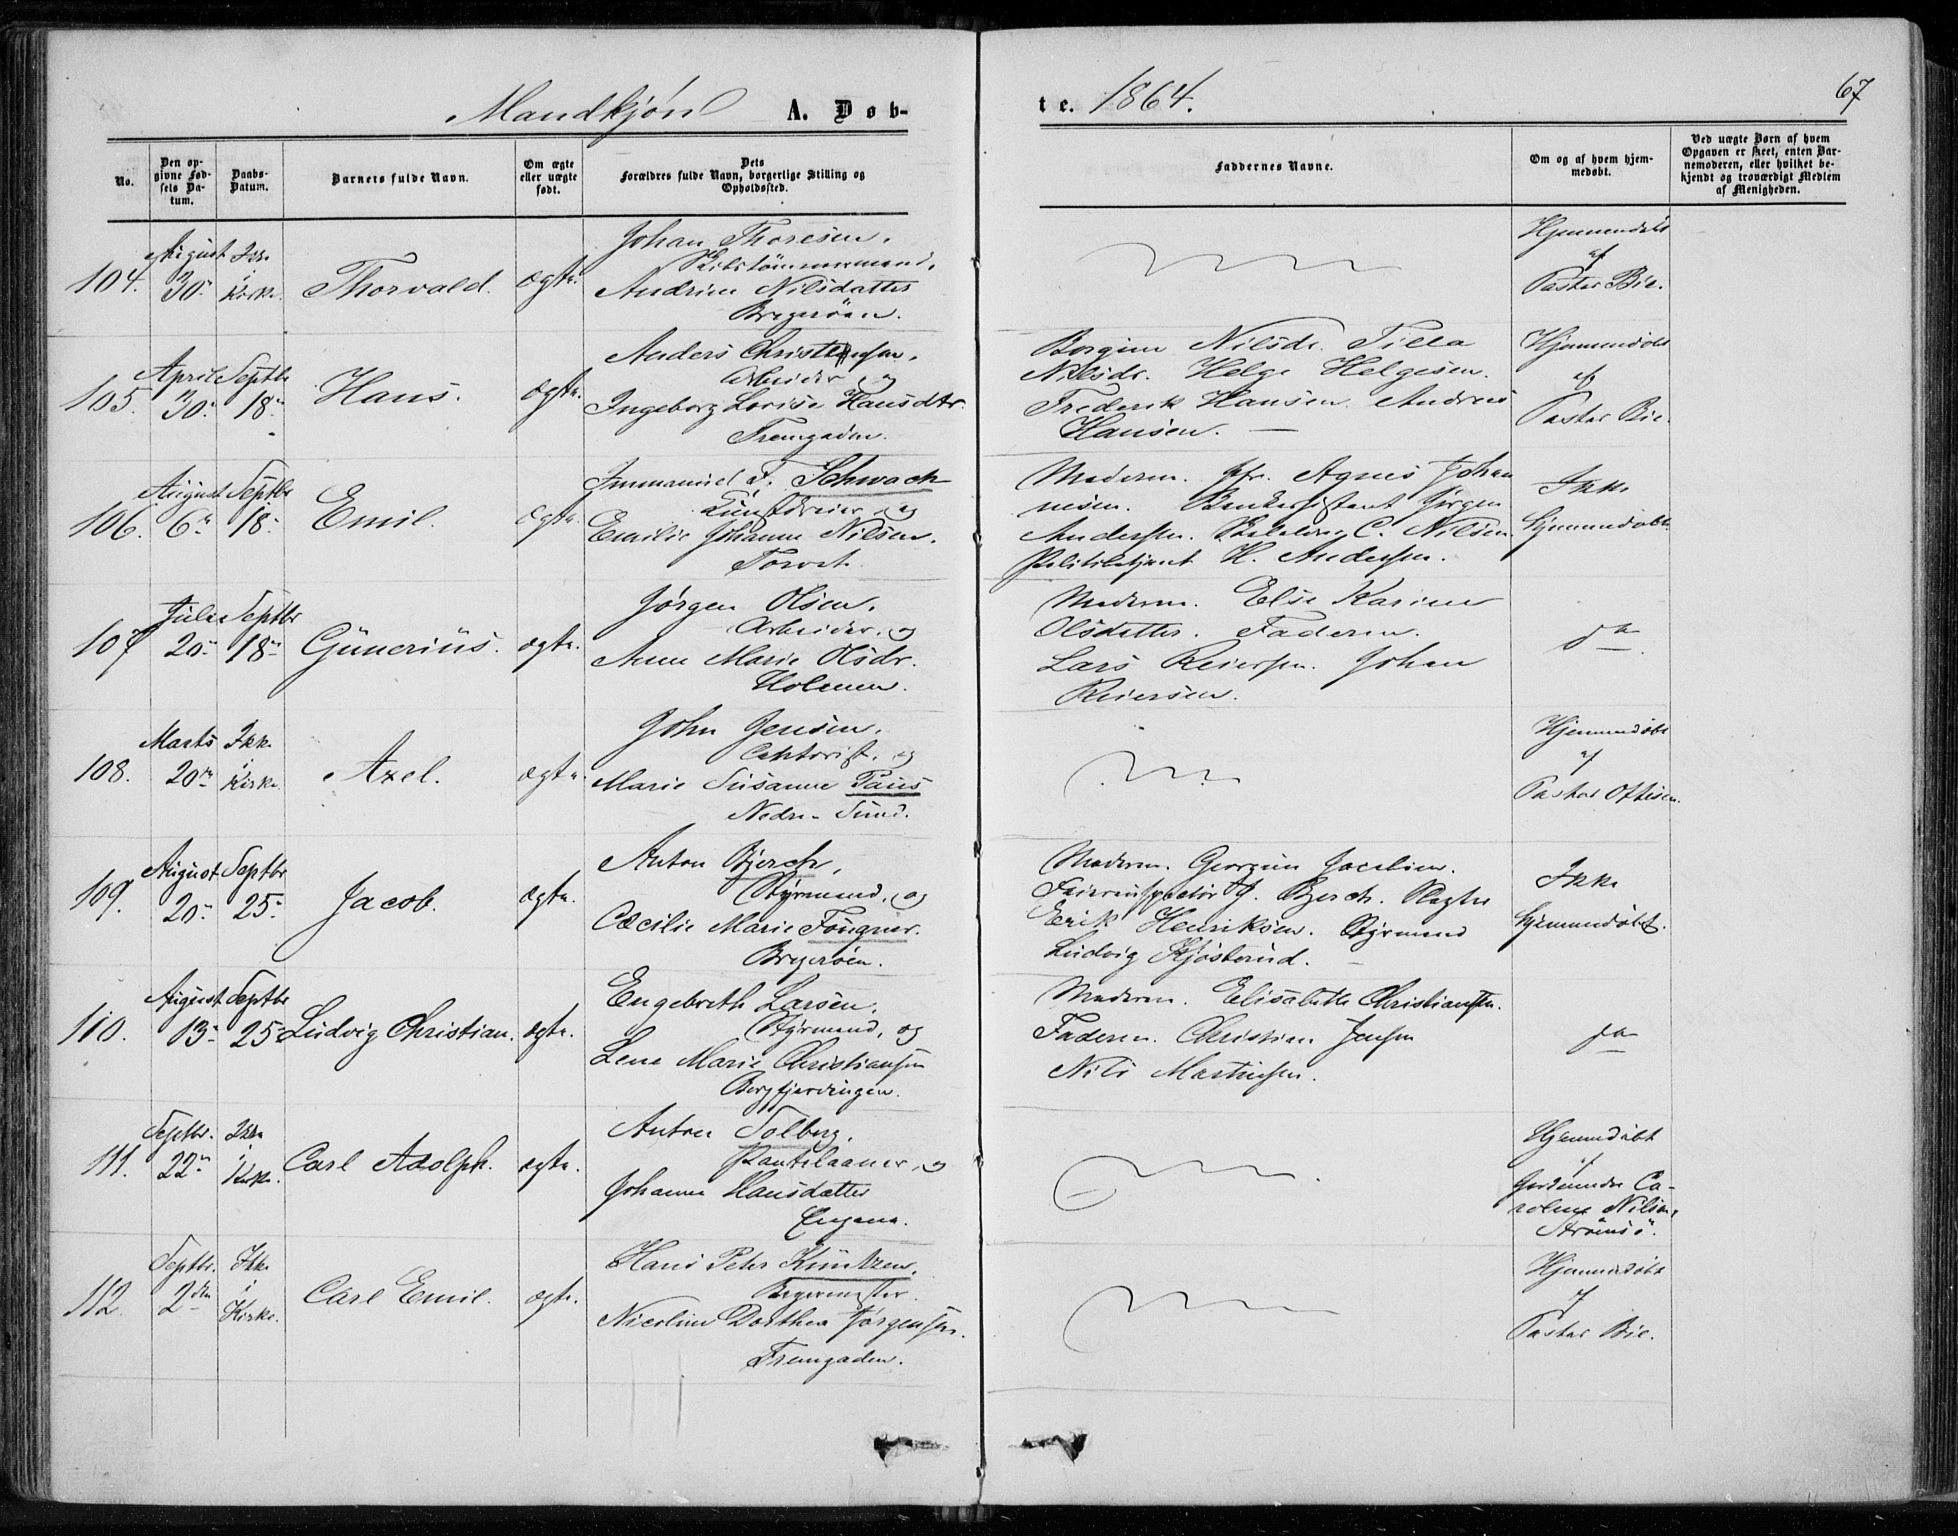 Mandkjøn A. Døb-
te. 1864.
67
No.
Den opgivne Fødsels Datum.
Daabs-Datum.
Barnets fulde Navn.
Om ægte eller uægte født.
Dets
Forældres fulde Navn, borgerlige Stilling og Opholdssted.
Faddernes Navne.
Om og af hvem hjemmedøbt.
Ved uægte Børn af hvem Opgaven er skeet, enten Barnemoderen, eller hvilket bekjendt og troværdigt Medlem af Menigheden.
104. August 30. Ikke i Kirke. Thorvald. ægte.
Johan Thoresen.
Andrine Nilsdatter
Bragerøen.
Hjemmedøbt
af
Pastor Bie.
105. April 30. Septbr 18. Hans. ægte.
Anders Christensen.
Arbeider og
Ingeborg Lovise Hansdtr.
Fremgaden.
Borgine Nilsdr. Tilla
Nilsdr. Helge Helgesen.
Frederik Hansen. Andreas
Hansen.
Hjemmedøbt
af
Pastor Bie.
106. August 6te Septbr 18. Emil. ægte.
Immanuel F. Schwach
Kunstdreier, og
Emilie Johanne Nilsen.
Torvet.
Moderen. Jfr. Agnes Johan
nesen. Bankassistent Jørgen
Anderssen. C. Nilsen.
Politibetjent H. Anderssen.
Ikke
hjemmedøbt.
107. Juli 20. Septbr 18. Gunerius. ægte.
Jørgen Olsen.
Arbeider, og
Anne Marie Olsdr.
Holmen.
Moderen. Else Karine
Olsdatter. Faderen.
Lars Reiersen. Johan
Reiersen.
do
108. Marts 20de Ikke i Kirke. Axel. ægte.
John Jensen.
Contorist, og
Marie Susanne Paus
Nedre Sund.
Hjemmedøbt
af
Pastor Ottesen.
109. August 20. Septbr 25. Jacob. ægte.
Anton Bjerch,
Styrmand, og
Cæcilie Marie Fougner.
Bragerøen.
Moderen. Georgine Jacobsen.
Bjerch.
Erik Henriksen. Styrmand
Ludvig Kjøsterud.
Ikke
hjemmedøbt.
110. August 13. Septbr 25. Ludvig Christian. ægte.
Engebreth Larsen.
Styrmand, og
Lena Marie Christiansen
Bergfjerdingen.
Moderen. Elisabeth Christiansen.
Faderen. Christian Jensen
Nils Martinsen.
do
111. Septbr. 22. Ikke i Kirke. Carl Adolph. ægte.
Anton Solberg.
Pantelaaner, og
Johanne Hansdatter
Engene.
Hjemmedøbt
af
Jordemoder Ca-
roline Nilsen,
Strømsø.
112. Septbr. 2den Ikke i Kirke. Carl Emil. ægte.
Hans Peter Kuntzen.
Bagermester.
Nicoline Dorthea Jørgensen.
Fremgaden.
Hjemmedøbt
af
Pastor Bie.